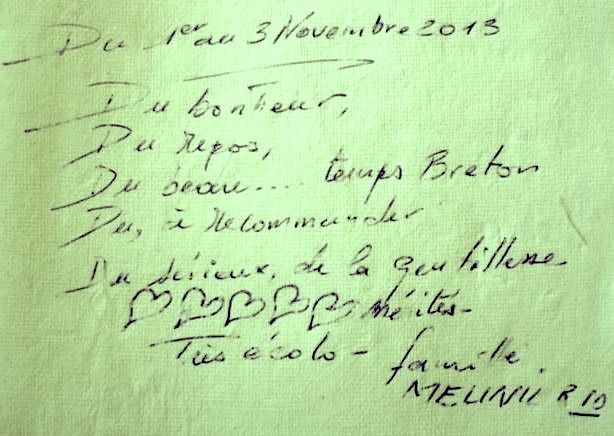 Du 1er au 3 Novembre 2013
Du bonheur,
Du Repos,
Du beau.... temps Breton
Du, à Recommander
Du sérieux, de la gentillesse
♡♡♡♡♡ mérités-
Très écolo - famille